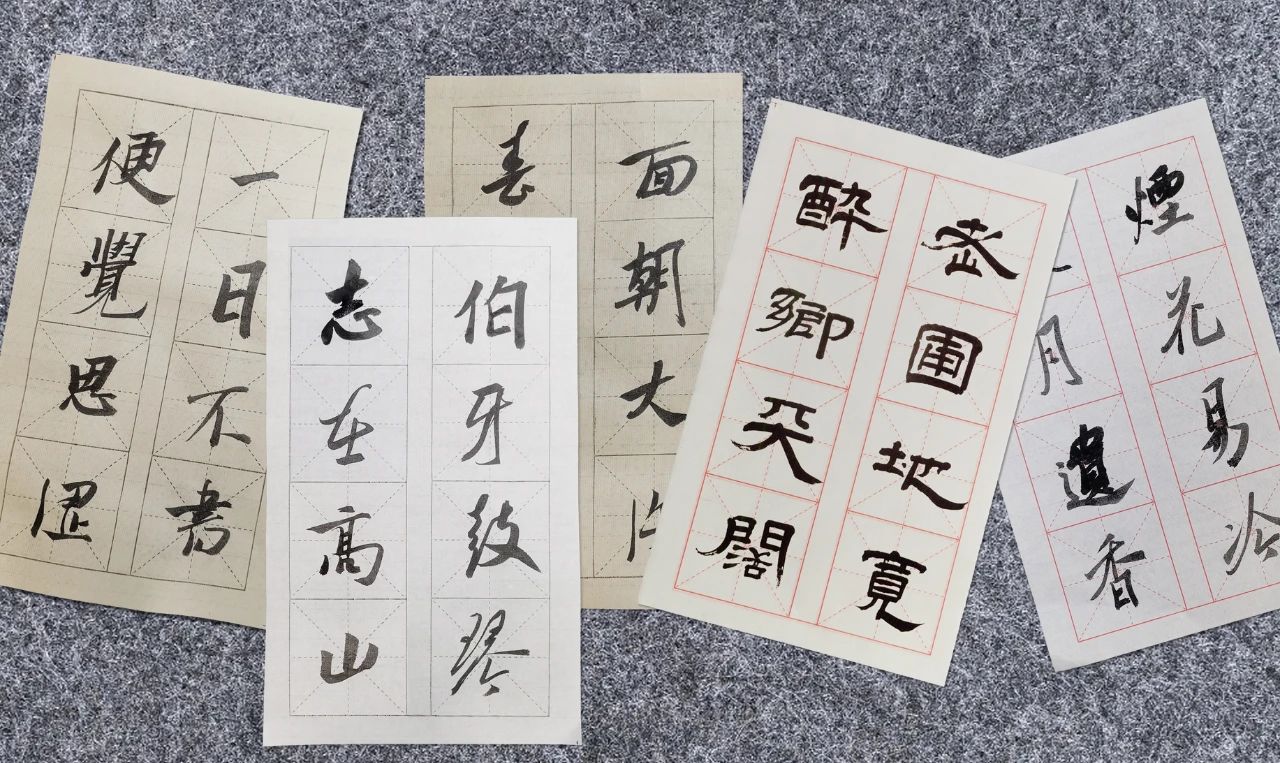 一日不書
便覺思涩
伯牙鼓琴
志在高山
面朝大
春
武圃地寬
醉鄉天闊
煙花易冷
月遺香